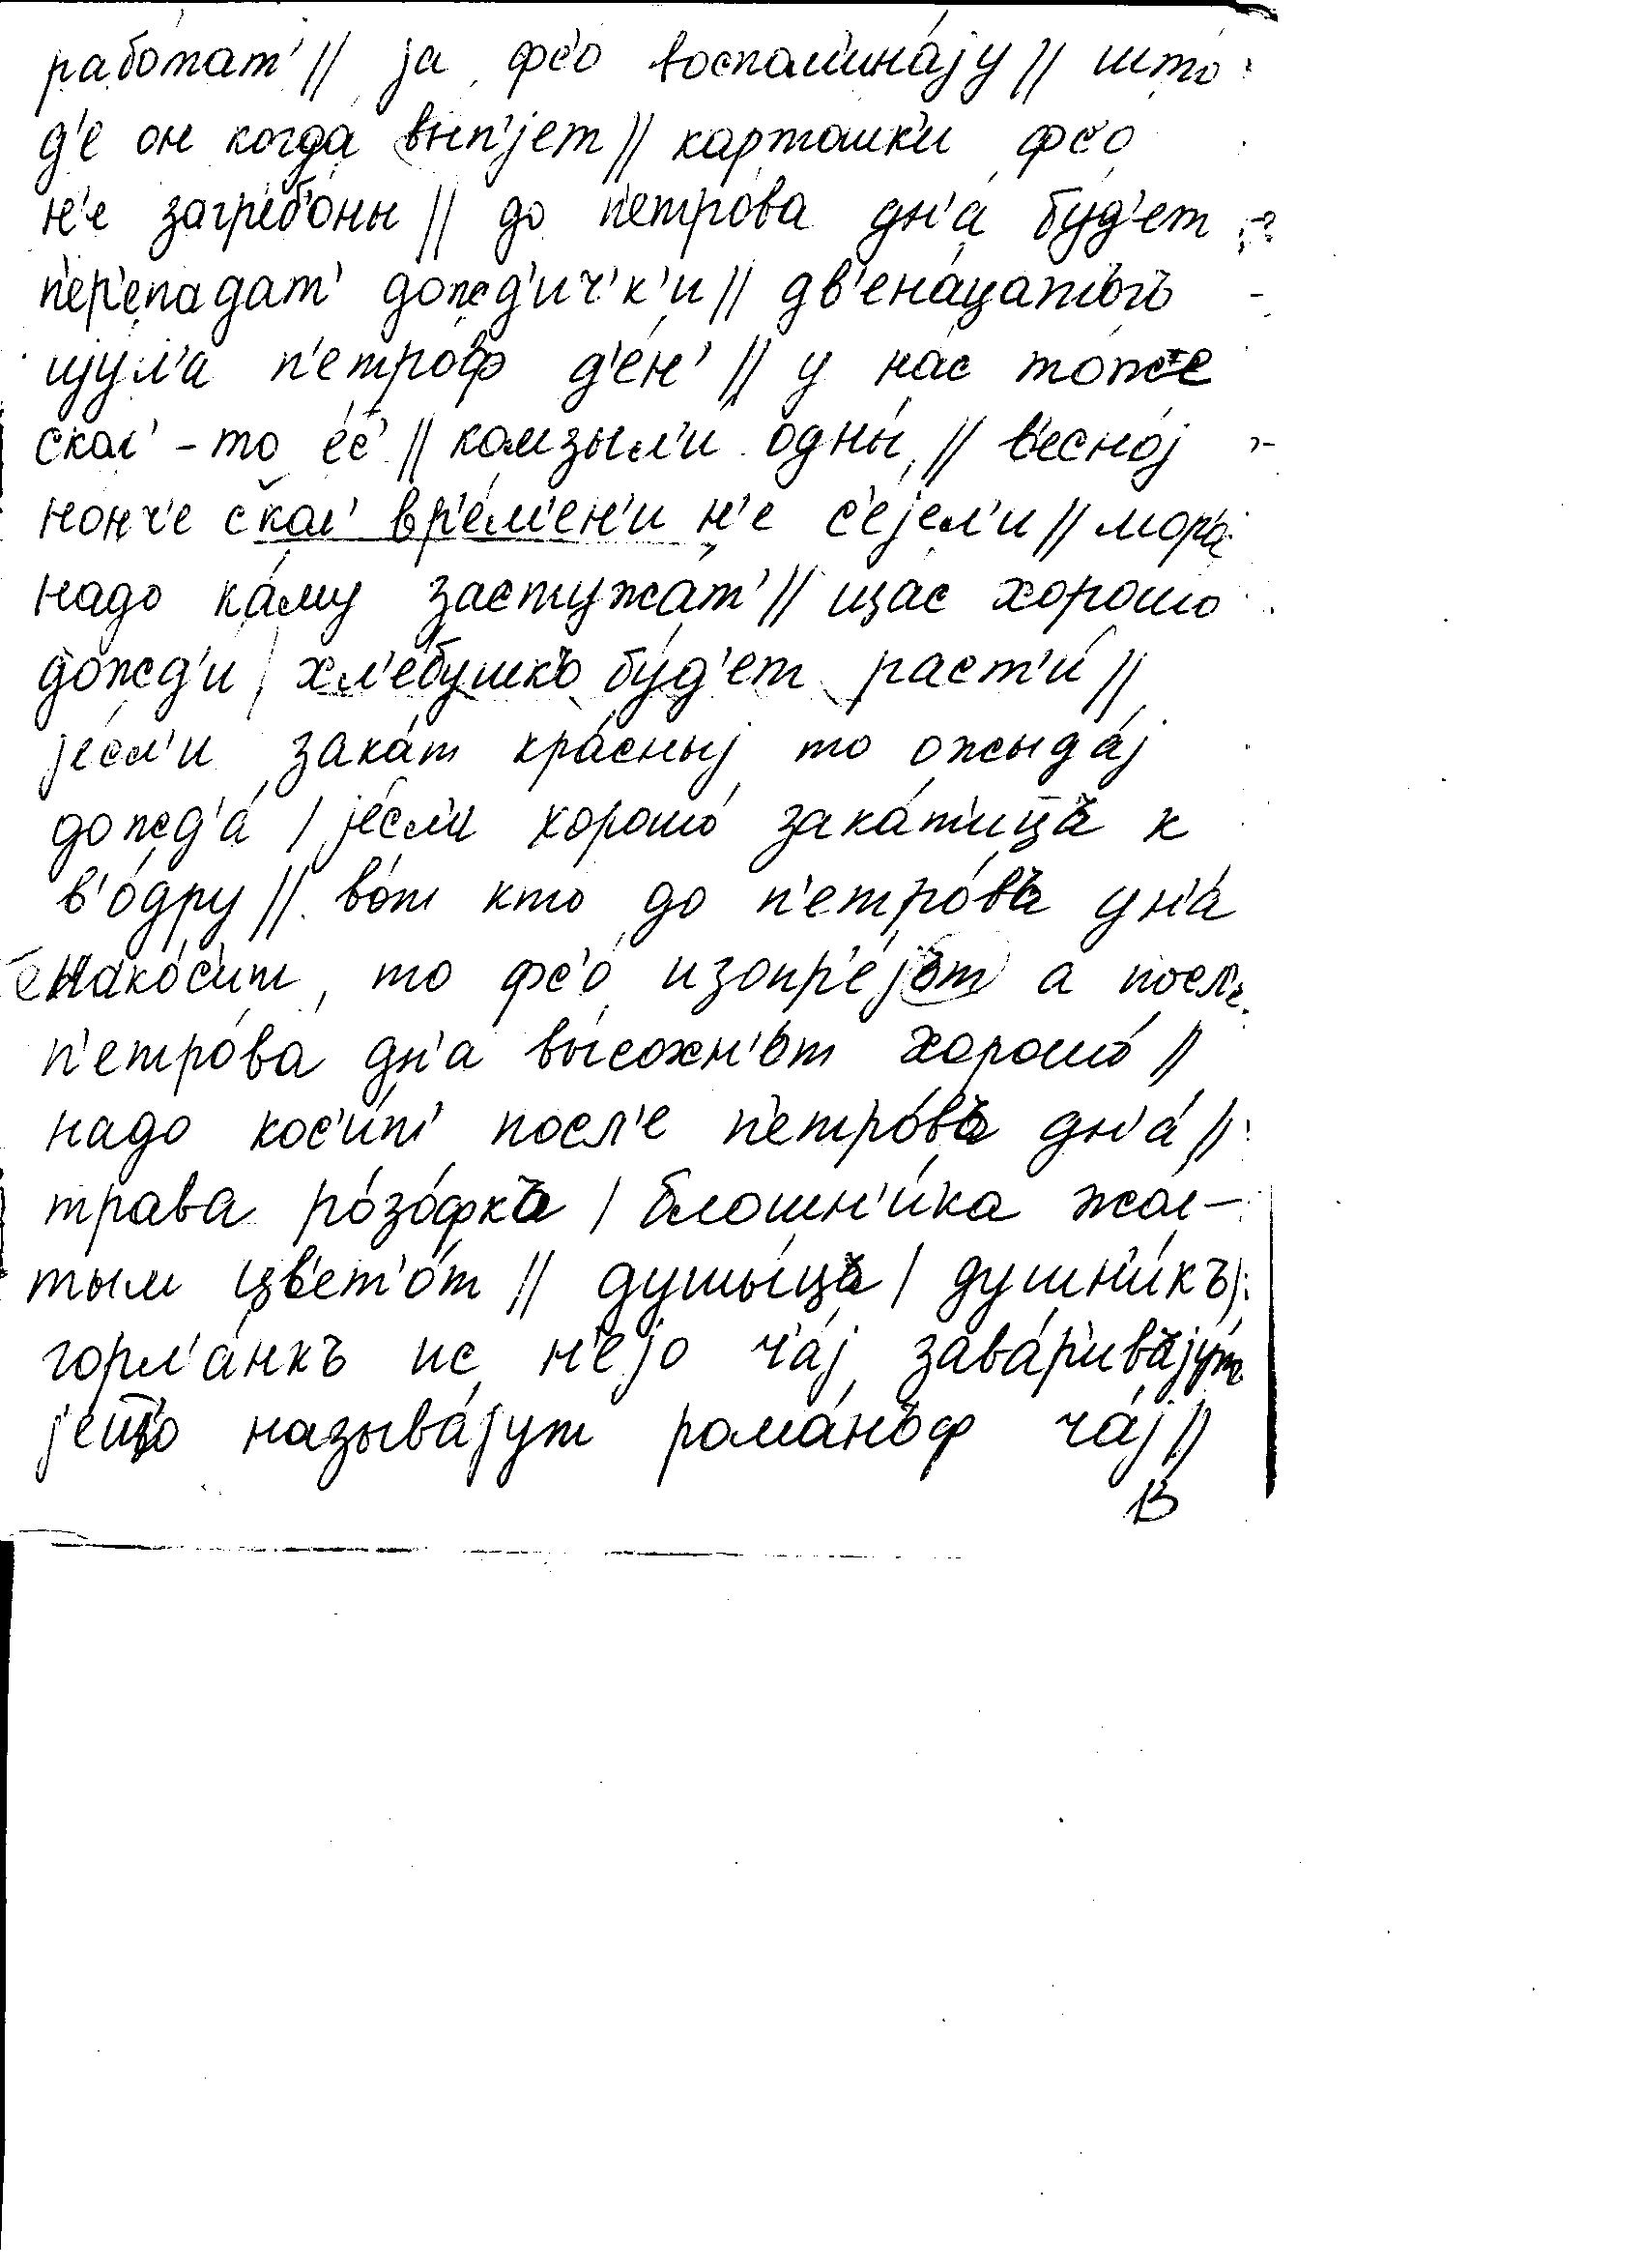 рабо́тат' // jа фс'о воспом'ина́jу // што
д'е он когда́ вып'jет // картошк'и фс'о
н'е загр'еб'о́ны // до п'етро́ва дн'а́ бу́д'ет
п'ер'епадат' дожд'ич'к'и // дв'ена́цатъгъ
иjул'а п'етро́ф д'е́н' // у на́с то́же
скол'-то е́с' // комзыл'и́ одны́ // в'есно́j
нонч'е скол' вр'е́м'ен'и н'е с'е́jел'и // мор'а́
надо ка́му застужа́т' // щас хорошо
дожд'и / хл'е́бушкъ бу́д'ет раст'и́ //
jе́сл'и зака́т кра́сныj то ожыда́j
дожд'а́ / jе́сл'и хорошо́ зака́т'ицъ к
в'о́дру // во́т кто до п'етро́въ дн'а́
накос'ит, то фс'о́ изопр'е́jот а посл'е
п'етро́ва дн'а вы́сохн'ът хорошо́ //
надо кос'и́т' посл'е п'етро́въ дн'а́ //
трава ро́зо́фкъ / блошн'и́ка жол-
тым цв'ет'о́т // душы́цъ / душн'и́къ /
горл'а́нкъ ис н'еjо ч'а́j зава́р'ивъjут
jещ'о называ́jут рома́нъф ча́j //
13